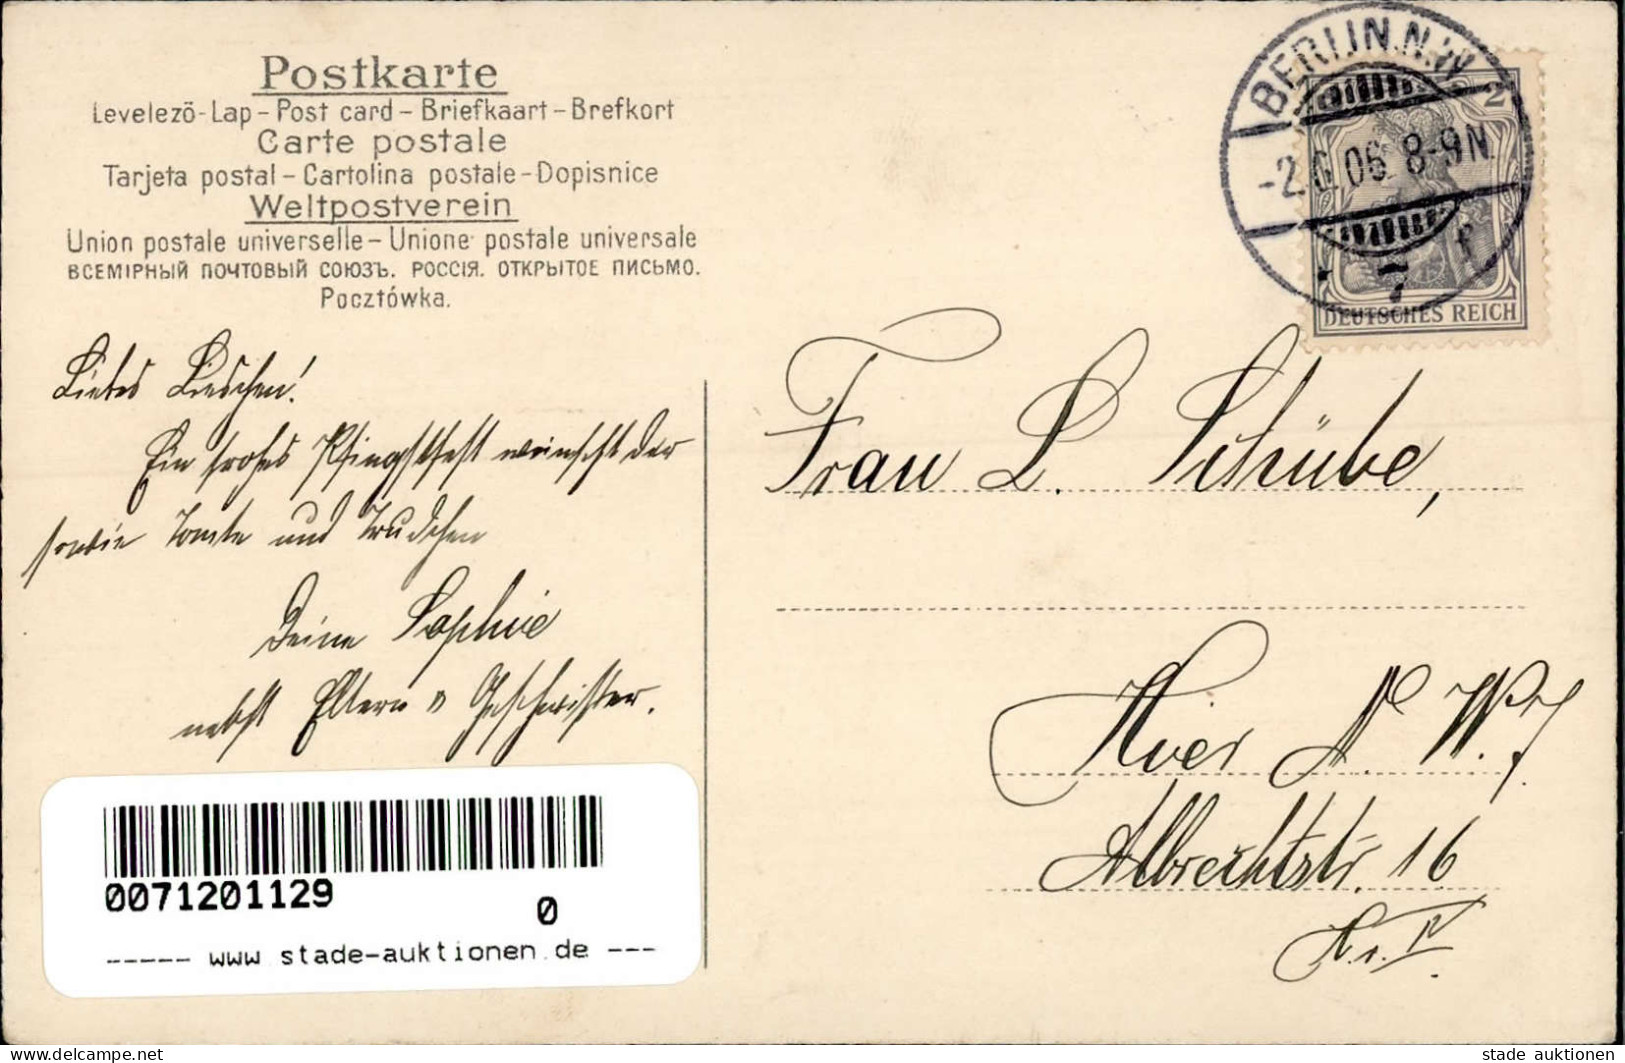 Postkarte
Levelezö-Lap – Post card – Briefkaart – Brefkort
Carte postale
Tarjeta postal – Cartolina postale – Dopisnice
Weltpostverein
Union postale universelle – Unione postale universale
ВСЕМІРНЫЙ ПОЧТОВЫЙ СОЮЗЪ. РОССІЯ. ОТКРЫТОЕ ПИСЬМО.
Pocztówka.
BERLIN.N.W.
-2.6.06. 8-9N.
7 f
2
DEUTSCHES REICH
Liebes Lieschen!
Ein frohes Pfingstfest wünscht der
sowie Tante und Trudchen
Deine Sophie
nebst Eltern u Geschwister.
Frau L. Schübe,
Hier N. W. 7
Albrechtstr. 16
IV
0071201129
0
----- www.stade-auktionen.de ---
www.delcampe.net
stade auktionen